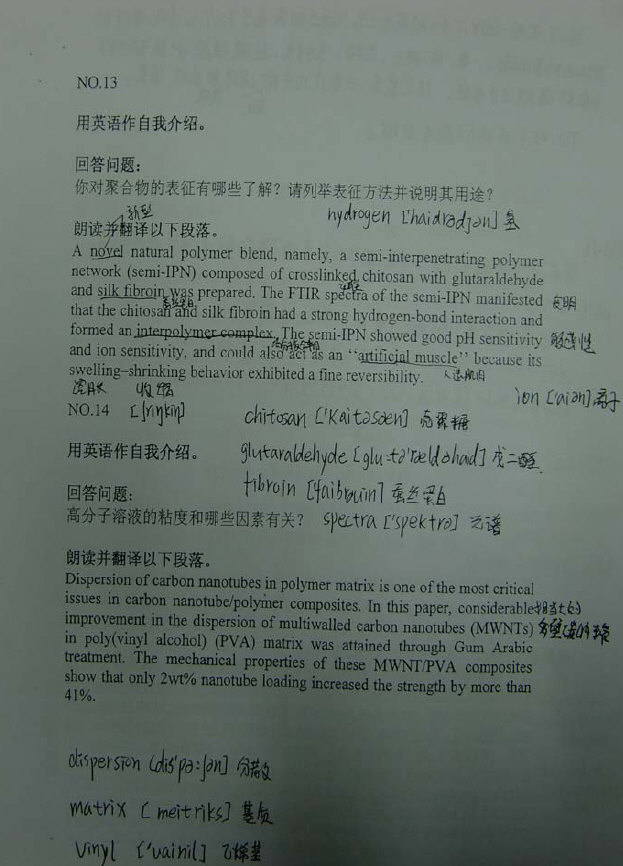 NO.13
用英语作自我介绍。
回答问题:
你对聚合物的表征有哪些了解？请列举表征方法并说明其用途？
新型
hydrogen ['haidrədʒən] 氢
朗读并翻译以下段落。
A novel natural polymer blend, namely, a semi-interpenetrating polymer
network (semi-IPN) composed of crosslinked chitosan with glutaraldehyde
and silk fibroin was prepared. The FTIR spectra of the semi-IPN manifested
表明
that the chitosan and silk fibroin had a strong hydrogen-bond interaction and
formed an interpolymer complex. The semi-IPN showed good pH sensitivity
敏感性
and ion sensitivity, and could also act as an "artificial muscle" because its
swelling–shrinking behavior exhibited a fine reversibility.
人造肌肉
溶胀 收缩
ion ['aiən] 离子
NO.14
[ʃriŋkiŋ]
chitosan ['kaitəsæn] 壳聚糖
用英语作自我介绍。
glutaraldehyde [glu:tə'rældəhaid] 戊二醛
fibroin [faibrouin] 蚕丝蛋白
回答问题:
高分子溶液的粘度和哪些因素有关？
spectra ['spektrə] 光谱
朗读并翻译以下段落。
Dispersion of carbon nanotubes in polymer matrix is one of the most critical
issues in carbon nanotube/polymer composites. In this paper, considerable
相当大的
improvement in the dispersion of multiwalled carbon nanotubes (MWNTs)
in poly(vinyl alcohol) (PVA) matrix was attained through Gum Arabic
treatment. The mechanical properties of these MWNT/PVA composites
show that only 2wt% nanotube loading increased the strength by more than
41%.
dispersion [dis'pə:ʃən] 分散
matrix [meitriks] 基质
vinyl ['vainil] 乙烯基